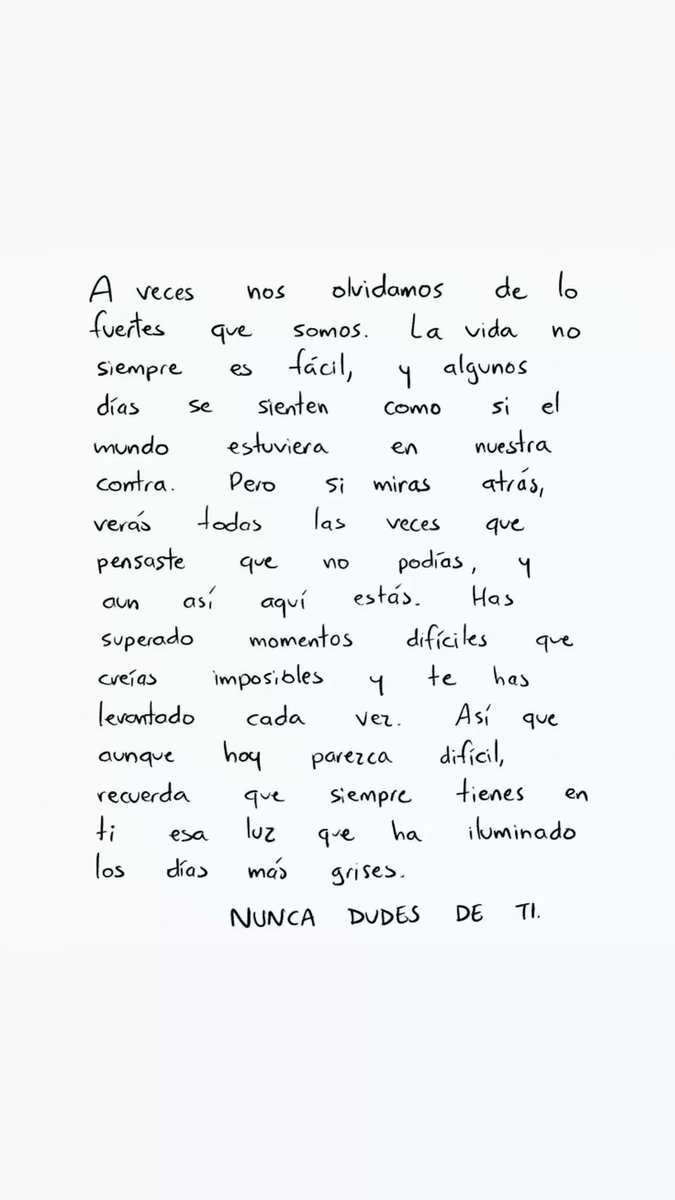 A veces nos olvidamos de lo
fuertes que somos. La vida no
siempre es fácil, y algunos
días se sienten como si el
mundo estuviera en nuestra
contra. Pero si miras atrás,
verás todas las veces que
pensaste que no podías, y
aun así aquí estás. Has
superado momentos difíciles que
creías imposibles y te has
levantado cada vez. Así que
aunque hoy parezca difícil,
recuerda que siempre tienes en
ti esa luz que ha iluminado
los días más grises.
NUNCA DUDES DE TI.